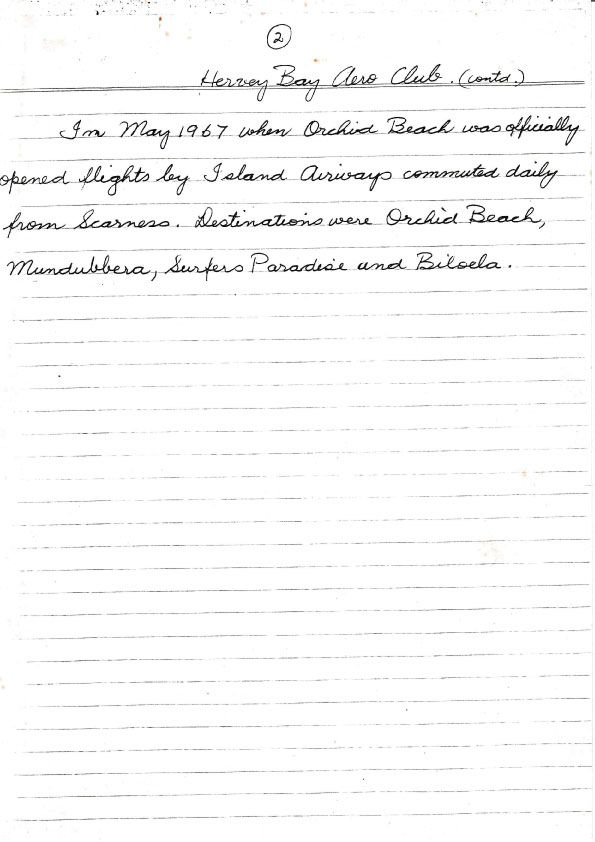 2
Hervey Bay Aero Club. (contd.)
In May 1967 when Orchid Beach was officially
opened flights by Island Airways commuted daily
from Scarness. Destinations were Orchid Beach,
Mundubbera, Surfers Paradise and Biloela.